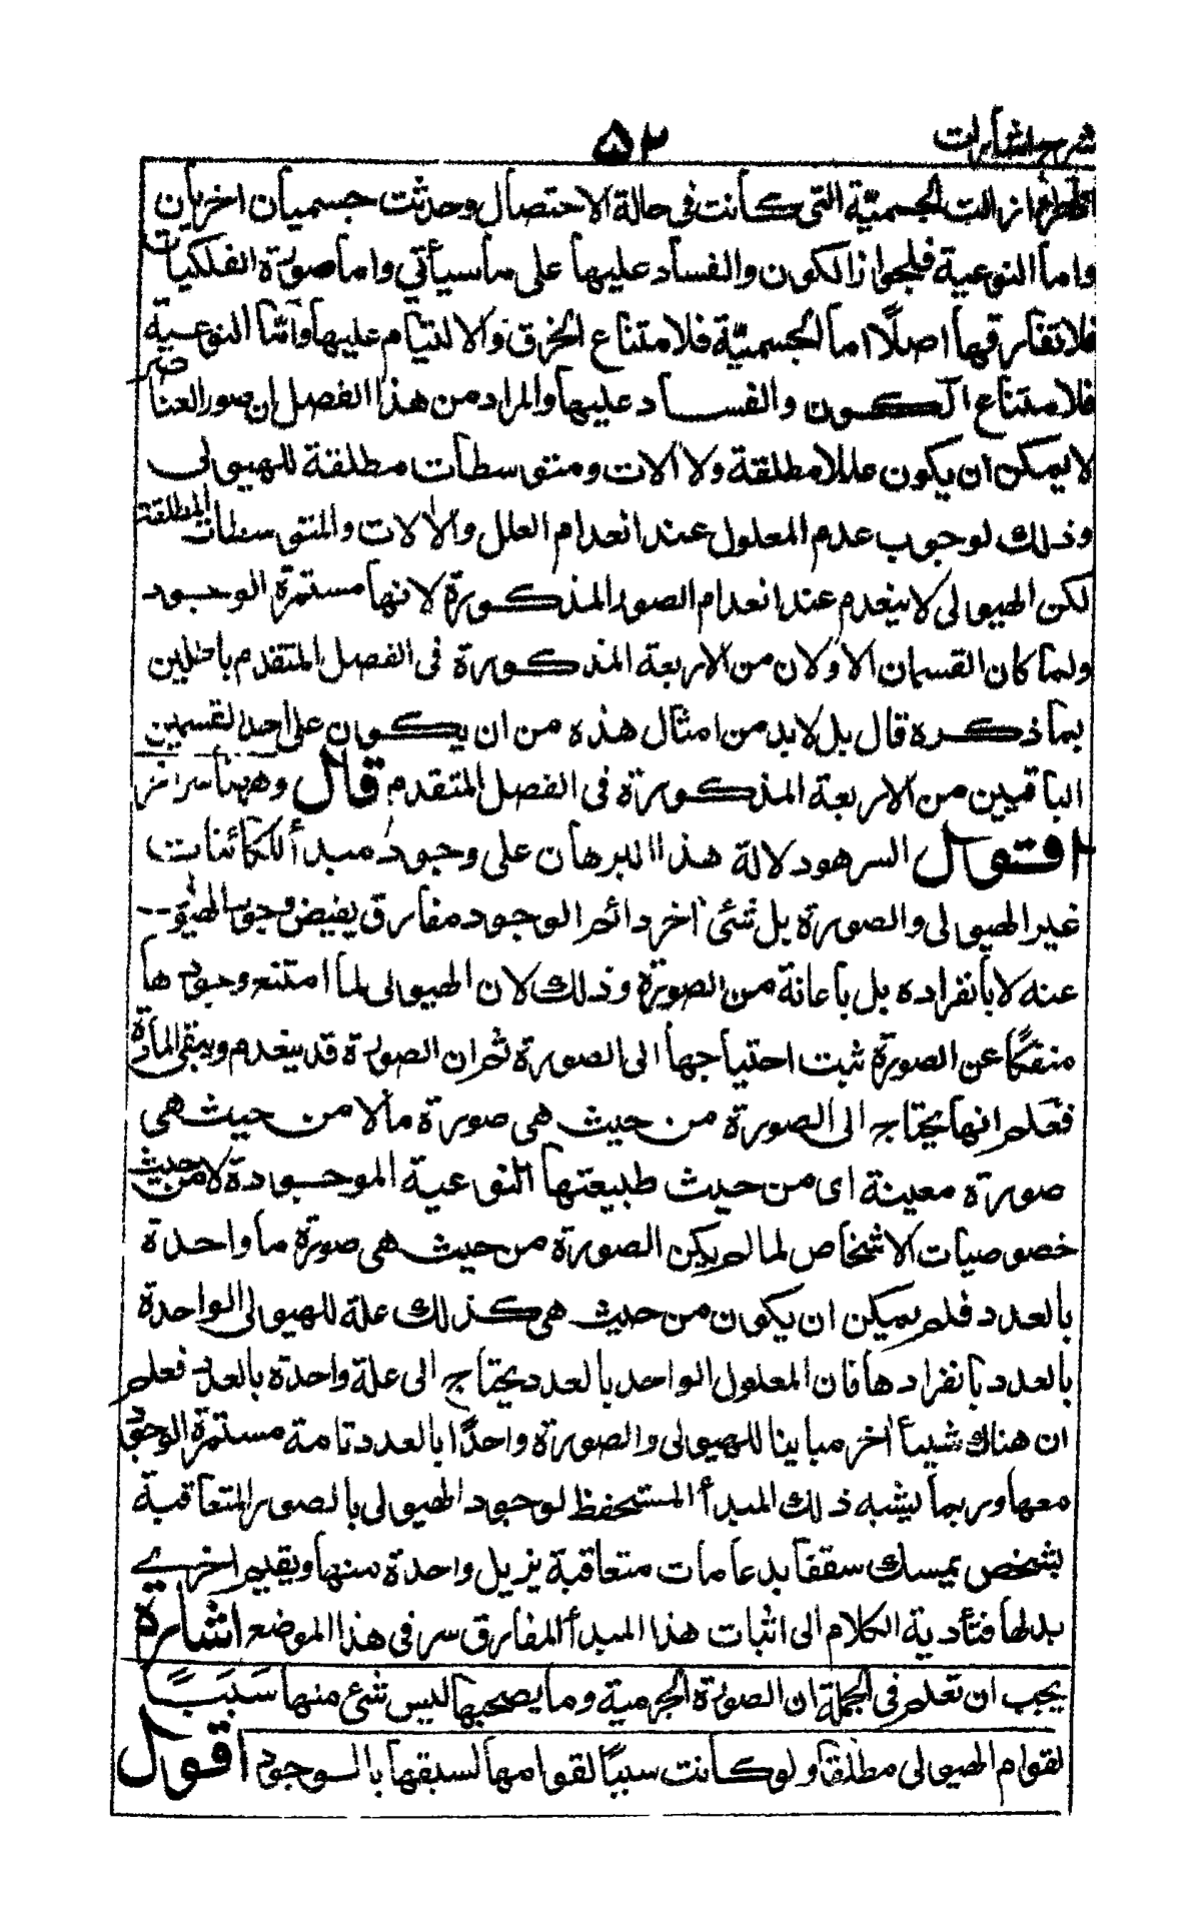 شرح اشارات ۵۲
زالت الجسمية التى كانت فى حالة الاتصال وحدثت جسميتان اخريان
واما النوعية فلجواز الكون والفساد عليها على ما سيأتي واما صورة الفلكيات
فلا تفارقها اصلًا اما الجسميّة فلامتناع الخرق والالتيام عليها وأما النوعية
فلامتناع الكون والفساد عليها والمراد من هذا الفصل ان صور العناصر
لا يمكن ان يكون عللا مطلقة ولا الات ومتوسطات مطلقة للهيولى
وذلك لوجوب عدم المعلول عند انعدام العلل والالات والمتوسطات المطلقة
لكن الهيولى لا ينعدم عند انعدام الصور المذكورة لانها مستمرة الوجود
ولما كان القسمان الاولان من الاربعة المذكورة فى الفصل المتقدم باطلين
بما ذكره قال بل لا بد من امثال هذه من ان يكون على احد القسمين
الباقيين من الاربعة المذكورة فى الفصل المتقدم قال وههنا سر اخر
اقول السر هو دلالة هذا البرهان على وجود مبدأ للكائنات
غير الهيولى والصورة بل شئ اخر دائم الوجود مفارق يفيض وجود الهيو--
عنه لا بانفراده بل باعانة من الصورة وذلك لان الهيولى لما امتنع وجود ها
منفكًا عن الصورة ثبت احتياجها الى الصورة ثم ان الصورة قد ينعدم ويبقى المادة
فعلم انها يحتاج الى الصورة من حيث هى صورة ما لا من حيث هى
صورة معينة اى من حيث طبيعتها النوعية الموجودة لا من حيث
خصوصيات الاشخاص لما لم يكن الصورة من حيث هى صورة ما واحدة
بالعدد فلم يمكن ان يكون من حيث هى كذلك علة للهيولى الواحدة
بالعدد بانفرادها فان المعلول الواحد بالعدد يحتاج الى علة واحدة بالعدد فعلم
ان هناك شيئا أخر مباينا للهيولى والصورة واحدًا بالعدد تامة مستمرة الوجود
معها وربما يشبه ذلك المبدأ المستحفظ لوجود الهيولى بالصور المتعاقبة
بشخص يمسك سقفا بدعامات متعاقبة يزيل واحدة منها ويقيم اخرى
بدلها فتأدية الكلام الى اثبات هذا المبدأ المفارق سر فى هذا الموضع اشارة
يجب ان تعلم فى الجملة ان الصورة الجرمية وما يصحبها ليس شئ منها سَبَبًا
لقوام الهيولى مطلقا ولو كانت سببًا لقوامها لسبقها بالوجود اقول